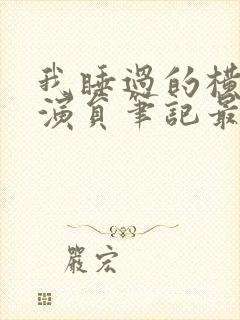 我睡過的橫
演員筆記最
嚴宏